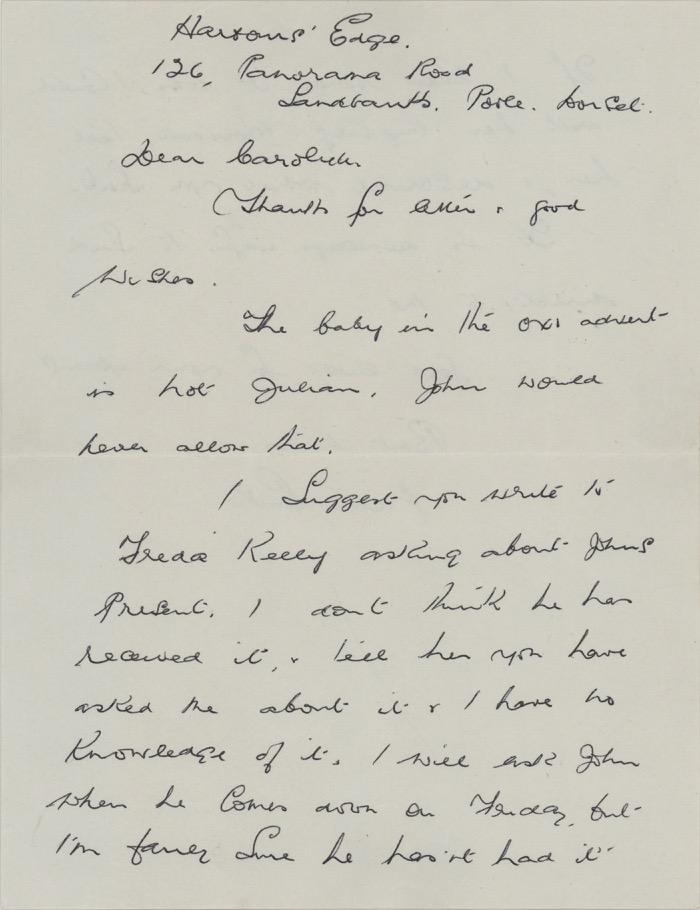 Harsons' Edge.
126, Panorama Road
Sandbanks. Poole. Dorset.
Dear
Thanks for letter & good
Wishes.
The baby in the oxo advert
is not Julian, John would
never allow that.
I suggest you write to
Freda Kelly asking about Johns
Present. I dont think he has
received it, & tell her you have
asked me about it & I have no
Knowledge of it, I will ask John
when he Comes down on Friday, but
I'm fairly Sure he hasn't had it